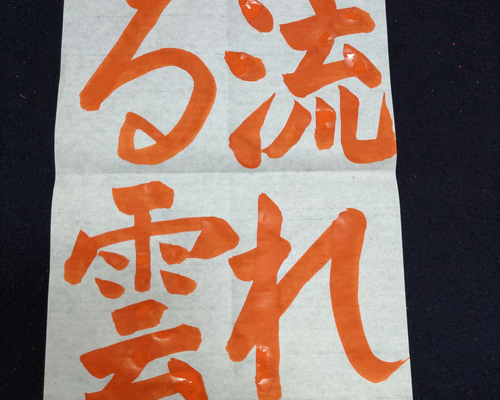 流れ
る雲